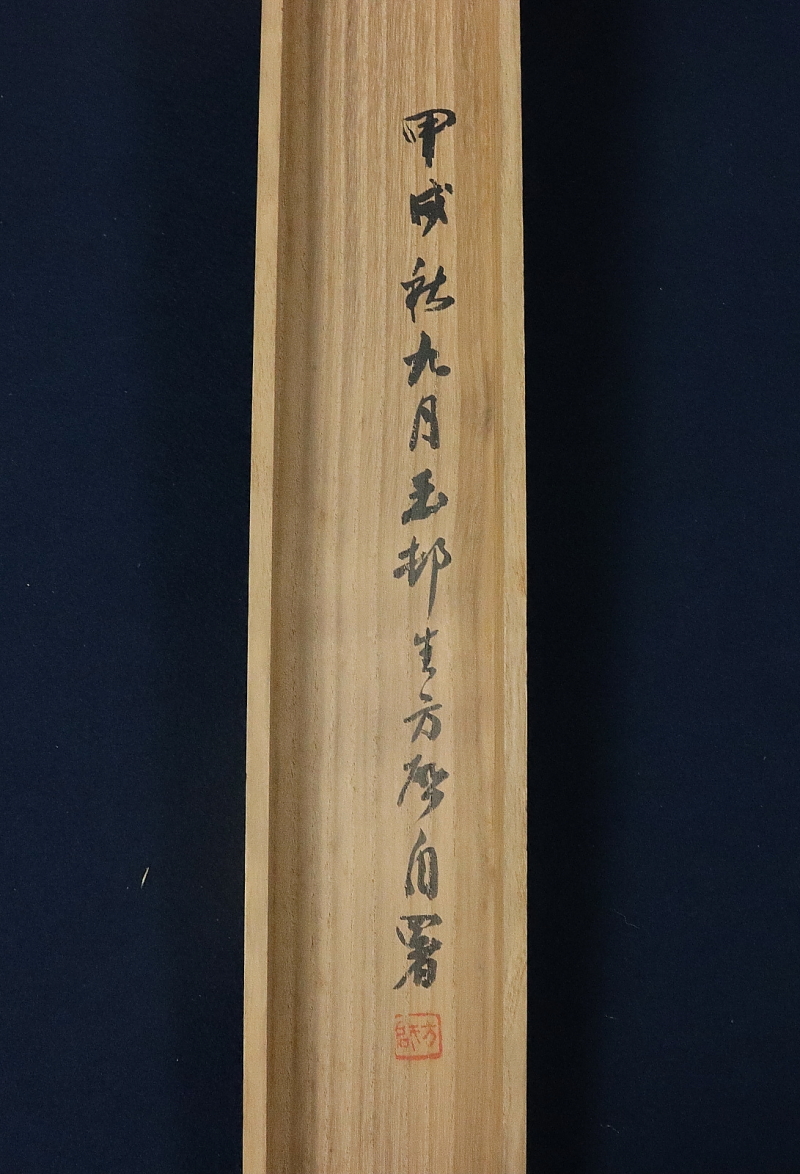 甲戌秋九月玉邨生方啓自署
方啓